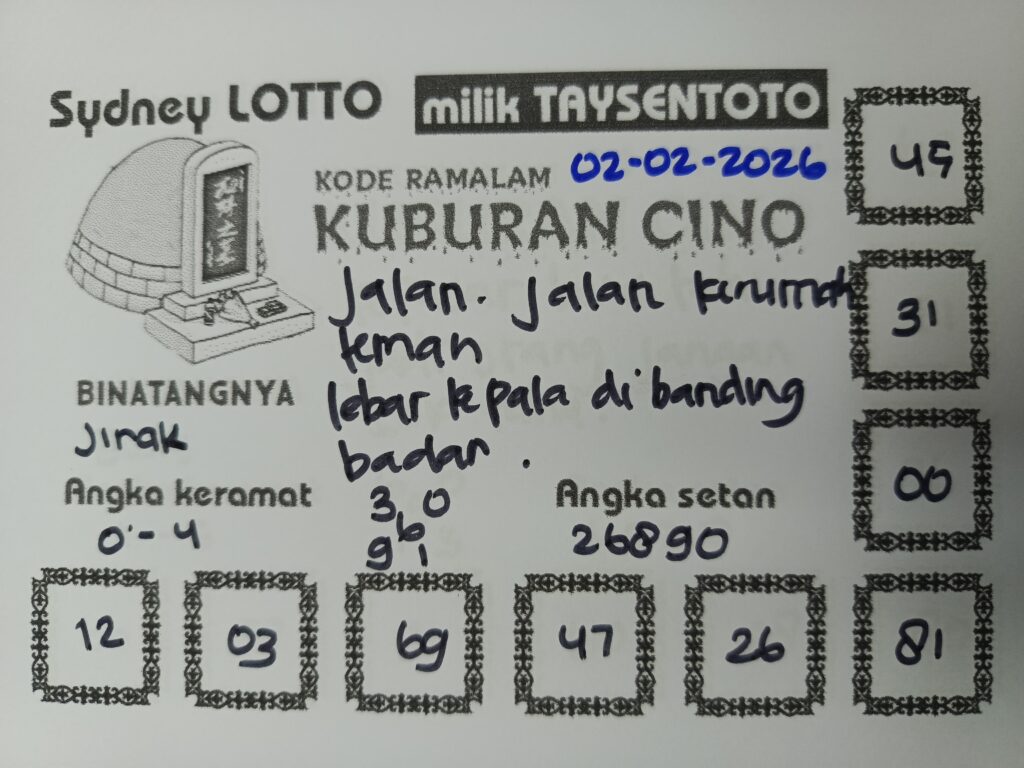 Sydney LOTTO
milik TAYSENTOTO
KODE RAMALAM
02-02-2026
KUBURAN CINO
Jalan. Jalan kerumah
teman
lebar kepala di banding
badan.
BINATANGNYA
Jinak
Angka keramat
0 - 4
3 0
6
9 1
Angka setan
26890
45
31
00
12
03
69
47
26
81